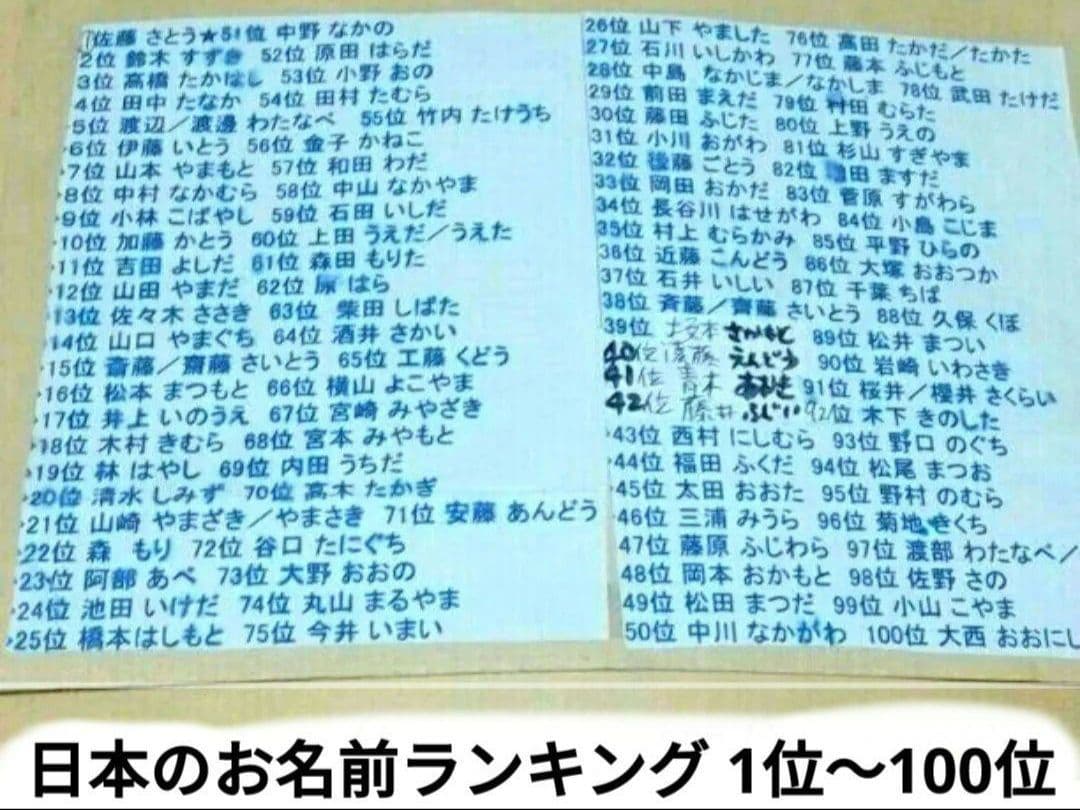 1佐藤 さとう★51位 中野 なかの
2位 鈴木 すずき 52位 原田 はらだ
3位 高橋 たかはし 53位 小野 おの
4位 田中 たなか 54位 田村 たむら
5位 渡辺／渡邊 わたなべ 55位 竹内 たけうち
6位 伊藤 いとう 56位 金子 かねこ
7位 山本 やまもと 57位 和田 わだ
8位 中村 なかむら 58位 中山 なかやま
9位 小林 こばやし 59位 石田 いしだ
10位 加藤 かとう 60位 上田 うえだ／うえた
11位 吉田 よしだ 61位 森田 もりた
12位 山田 やまだ 62位 原 はら
13位 佐々木 ささき 63位 柴田 しばた
14位 山口 やまぐち 64位 酒井 さかい
15位 斎藤／齋藤 さいとう 65位 工藤 くどう
16位 松本 まつもと 66位 横山 よこやま
17位 井上 いのうえ 67位 宮崎 みやざき
18位 木村 きむら 68位 宮本 みやもと
19位 林 はやし 69位 内田 うちだ
20位 清水 しみず 70位 高木 たかぎ
21位 山崎 やまざき／やまさき 71位 安藤 あんどう
22位 森 もり 72位 谷口 たにぐち
23位 阿部 あべ 73位 大野 おおの
24位 池田 いけだ 74位 丸山 まるやま
25位 橋本はしもと 75位 今井 いまい
26位 山下 やました 76位 高田 たかだ／たかた
27位 石川 いしかわ 77位 藤本 ふじもと
28位 中島 なかじま／なかしま 78位 武田 たけだ
29位 前田 まえだ 79位 村田 むらた
30位 藤田 ふじた 80位 上野 うえの
31位 小川 おがわ 81位 杉山 すぎやま
32位 後藤 ごとう 82位 田 ますだ
33位 岡田 おかだ 83位 菅原 すがわら
34位 長谷川 はせがわ 84位 小島 こじま
35位 村上 むらかみ 85位 平野 ひらの
36位 近藤 こんどう 86位 大塚 おおつか
37位 石井 いしい 87位 千葉 ちば
38位 斉藤／齊藤 さいとう 88位 久保 くぼ
39位 坂本 さかもと 89位 松井 まつい
40位 遠藤 えんどう 90位 岩崎 いわさき
41位 青木 あおき 91位 桜井／櫻井 さくらい
42位 藤井 ふじい 92位 木下 きのした
43位 西村 にしむら 93位 野口 のぐち
44位 福田 ふくだ 94位 松尾 まつお
45位 太田 おおた 95位 野村 のむら
46位 三浦 みうら 96位 菊地 きくち
47位 藤原 ふじわら 97位 渡部 わたなべ／
48位 岡本 おかもと 98位 佐野 さの
49位 松田 まつだ 99位 小山 こやま
50位 中川 なかがわ 100位 大西 おおにし
日本のお名前ランキング 1位～100位